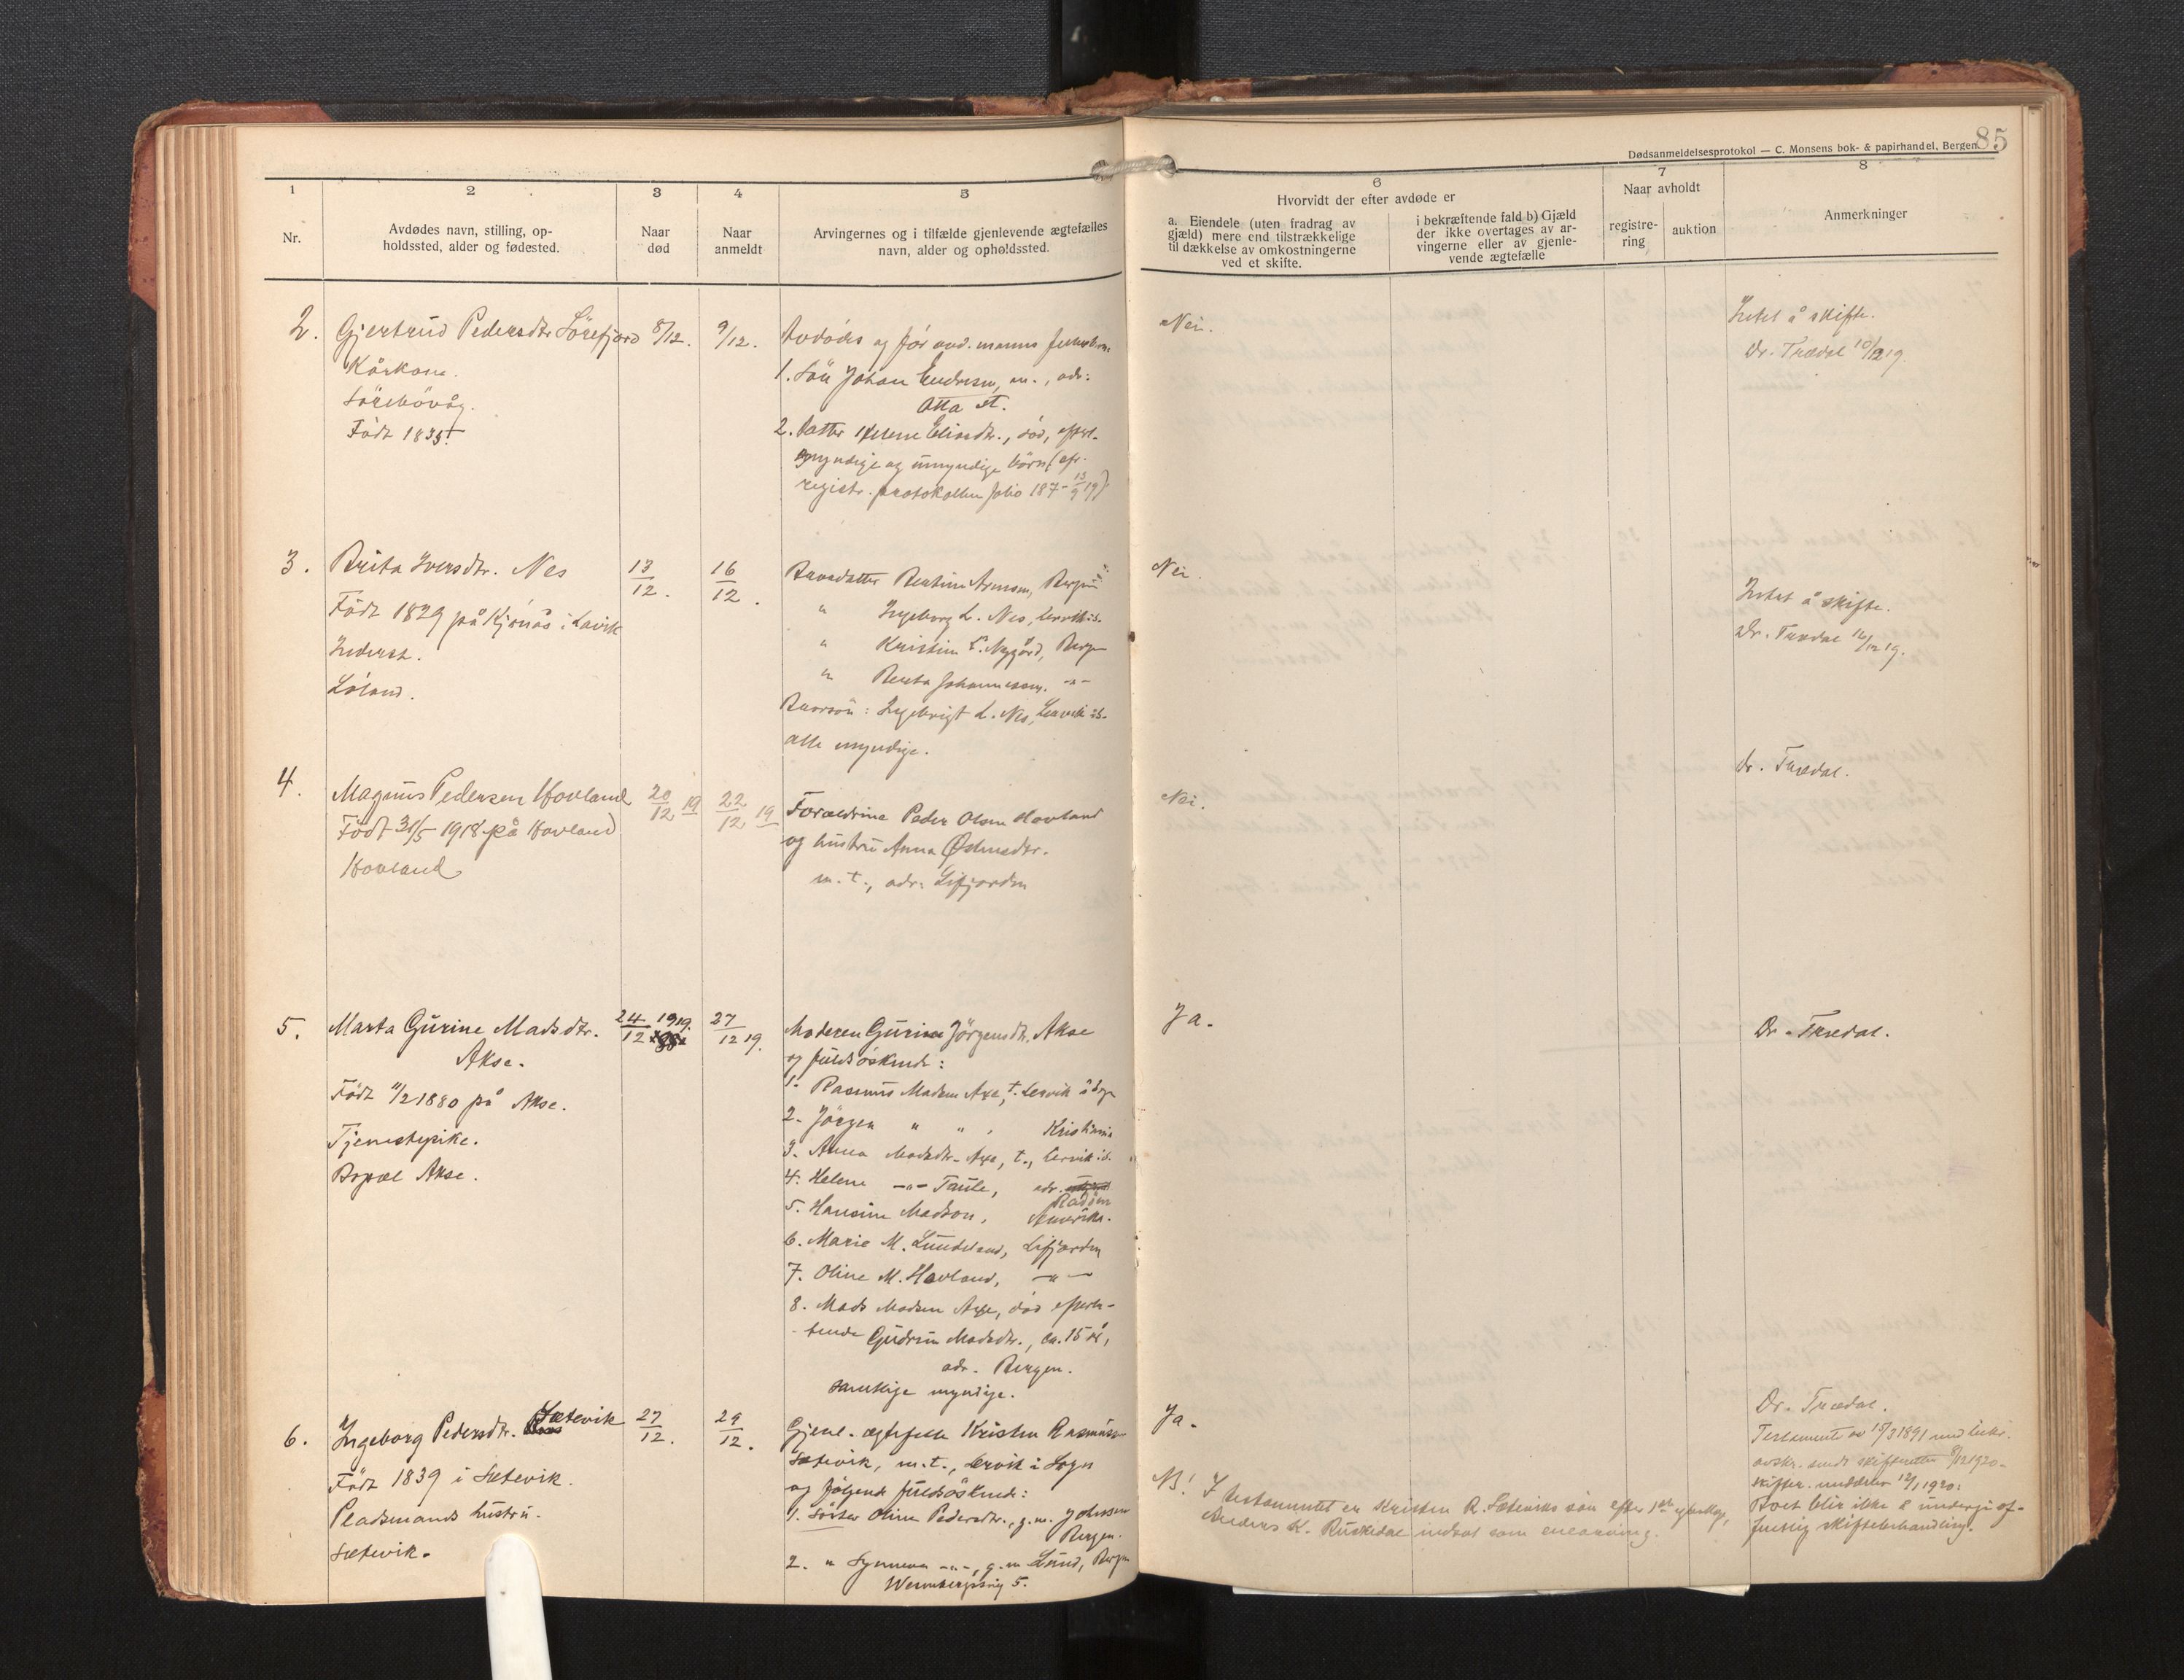 85
Dødsanmeldelsesprotokol — C. Monsens bok- & papirhandel, Bergen.
1
2
3
4
5
6
7
8
Nr.
Avdødes navn, stilling, op-
holdssted, alder og fødested.
Naar
død
Naar
anmeldt
Arvingernes og i tilfælde gjenlevende ægtefælles
navn, alder og opholdssted.
Hvorvidt der efter avdøde er
a. Eiendele (uten fradrag av
gjæld) mere end tilstrækkelige
til dækkelse av omkostningerne
ved et skifte.
i bekræftende fald b) Gjæld
der ikke overtages av ar-
vingerne eller av gjenle-
vende ægtefælle
Naar avholdt
registre-
ring
auktion
Anmerkninger
2.
Gjertrud Pedersdtr. Sörefjord
Kårkone.
Sörebövåg.
Födt 1835.
8/12.
9/12.
Avdödes og för avd. manns
1. Sön Johan Endresen, m., adr:
Otta st.
2. Datter Helene Elisedtr., död, efterl.
myndige og umyndige börn (cfr.
registr. protokollen folio 187 - 13/9 19)
Nei.
Intet å skifte.
Dr. Trædal 10/12 19.
3.
Brita Iversdtr. Nes
Födt 1829 på Kjönås i Lavik
Inderst.
Löland.
13/12.
16/12.
Barnedatter Bertine Arnesen, Bergen
" Ingeborg L. Nes, Lervik i S.
" Kristine L. Nygård, Bergen
" Berta Johannessen. -"-
Barnesön: Ingebrigt L. Nes, Leirvik i S.
alle myndige.
Nei.
Intet å skifte.
Dr. Trædal 16/12 19.
4.
Magnus Pedersen Hovland
Födt 31/5 1918 på Hovland
Hovland
20/12 19
22/12 19
Forældrene Peder Olsen Hovland
og hustru Anna Østensdtr.
m. t., adr: Lifjorden
Nei.
Dr. Trædal.
5.
Marta Gurine Madsdtr.
Akse.
Födt 11/2 1880 på Akse.
Tjenestepike.
Bopæl Akse.
24/12 1919.
27/12 19.
Moderen Gurine Jörgensdtr. Akse
og fuldsöskende:
1. Rasmus Madsen Axe, t. Lervik i Sogn
2. Jörgen " " , Kristiania
3. Anna Madsdtr. Axe, t., Lervik i S.
4. Helene -"- Taule, adr.
Radöen
5. Hansine Madson, Amerika.
6. Marie M. Lundeland, Lifjorden
7. Oline M. Hovland, -"-
8. Mads Madsen Axe, död efterla-
tende Gudrun Madsdtr., ca. 15 år,
adr. Bergen.
samtlige myndige.
Ja.
Dr. Trædal.
6.
Ingeborg Pedersdtr. Sætevik
Födt 1839 i Sætevik.
Pladsmands hustru.
Sætevik.
27/12.
29/12.
Gjenl. ægtefelle Kristen Rasmussen
Sætevik, m.t., Lervik i Sogn
og følgende fuldsöskende:
1. Söster Oline Pedersdtr., g.m. Johnsen
Bergen.
2. " Synneva -"-, g.m. Lund, Bergen
5.
Ja.
NB! I testamentet er Kristen R. Sæteviks sön efter 1ste egteskap,
Anders K. Ruskedal indsat som enearving.
Dr. Trædal.
Testamente av 15/3 1891 med bekr.
avskr. sendt skifteretten 8/1 1920.
skifter. meddeler 12/1 1920:
Boet blir ikke å undergi of-
fentlig skiftebehandling.